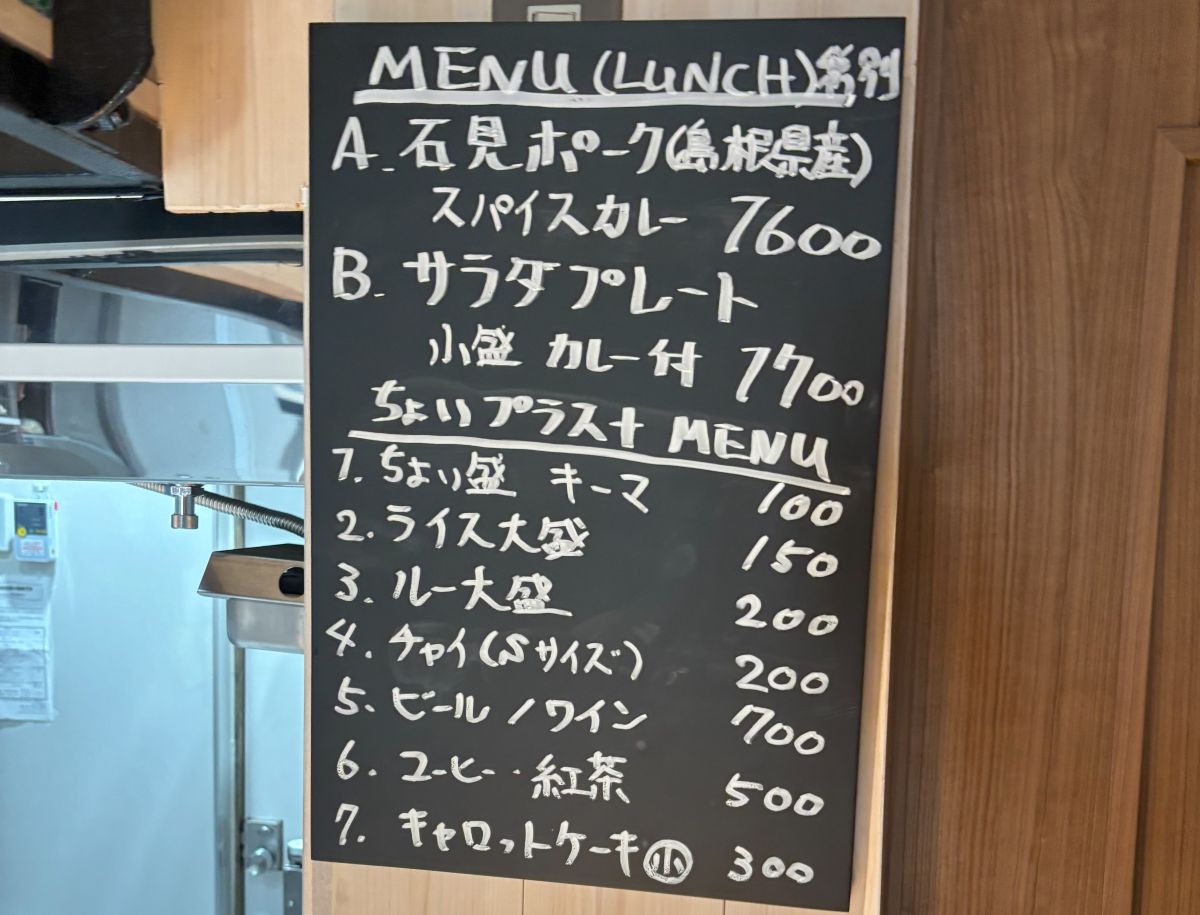 MENU (LUNCH) 税別
A. 石見ポーク(島根県産)
スパイスカレー 1600
B. サラダプレート
小盛 カレー付 1700
ちょいプラス+ MENU
1. ちょい盛 キーマ 100
2. ライス大盛 150
3. ルー大盛 200
4. チャイ(Sサイズ) 200
5. ビール/ワイン 700
6. コーヒー・紅茶 500
7. キャロットケーキ㊙小 300